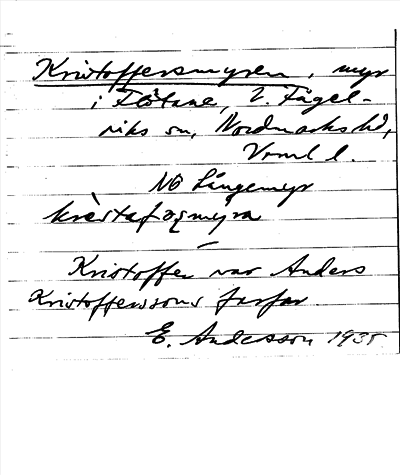 Kristoffersmyren, myr
i Flötane, V. Fågel-
viks sn, Nordmarks hd,
Vrml l.
NO Långemyr
krèstafəṣmyra
Kristoffer var Anders
Kristofferssons farfar
E. Andersson 1935